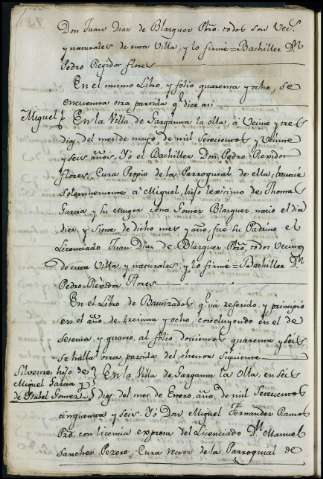 Don Juan Diaz de Blazquez Pbro. todos son Vec.s
y naturales de esta Villa, y lo firmé = Bachiller Dn.
Pedro Regidor flores
En el mismo Libro, y folio quarenta y ocho, se
encuentra otra partida q. dice asi
Miguel En la Villa de Sarganta la olla, à Veinte y tres
dias del mes de mayo de mil Setecientos y Veinte
y seis años, Yo el Bachiller Don Pedro Rexidor
Flores, Cura Propio de la Parroquial de ella, baptice
solemnemente à Miguel, hijo lexitimo de Thomas
Garcia y su muger nacio el dia
diez y siete de dicho mes y año, fue su Padrino el
Licenciado Juan Diaz de Blazquez Pbro. todos Vecinos
de esta Villa, y naturales, y lo firmé = Bachiller Dn.
Pedro Rexidor Flores
En el Libro de Bautizados q. va referido, y principio
en el año de treinta y ocho, concluyendo en el de
Sesenta y quatro, al folio doscientos quarenta y seis
se halla otra partida del thenor siguiente
Silvestre, hijo de
Miguel Garcia y
de Isabel Gomez
En la Villa de Sarganta la Olla, en seis
dias del mes de Enero, año de mil Setecientos
cinquenta y seis Yo Dn. Miguel Fernandez Ramos
Pro. con licencia expresa del Licenciado Dn. Manuel
Sanchez Cura rector de la Parroquial de